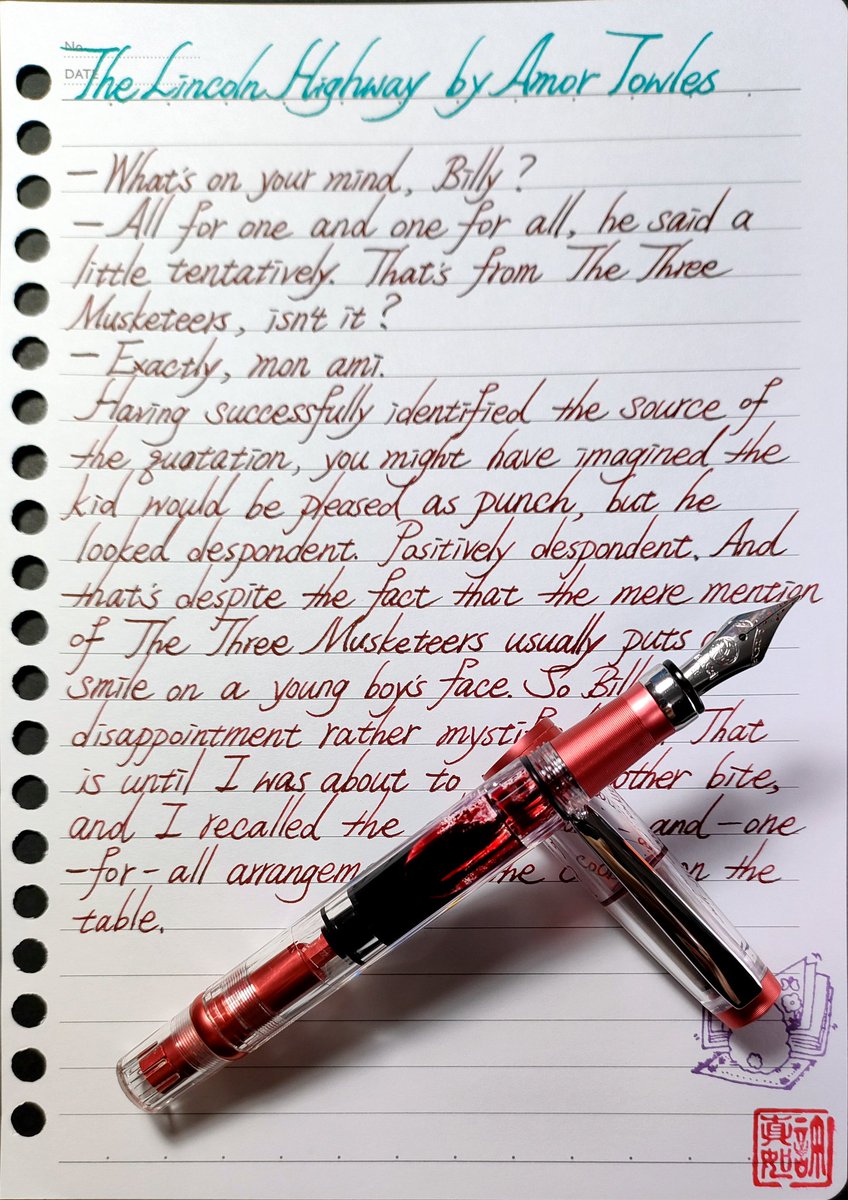 No.
DATE
The Lincoln Highway by Amor Towles
— What's on your mind, Billy?
— All for one and one for all, he said a
little tentatively. That's from The Three
Musketeers, isn't it?
— Exactly, mon ami.
Having successfully identified the source of
the quotation, you might have imagined the
kid would be pleased as punch, but he
looked despondent. Positively despondent. And
that's despite the fact that the mere mention
of The Three Musketeers usually puts
smile on a young boy's face. So
disappointment rather That
is until I was about to bite,
and I recalled the and-one
-for-all the
table.
真如